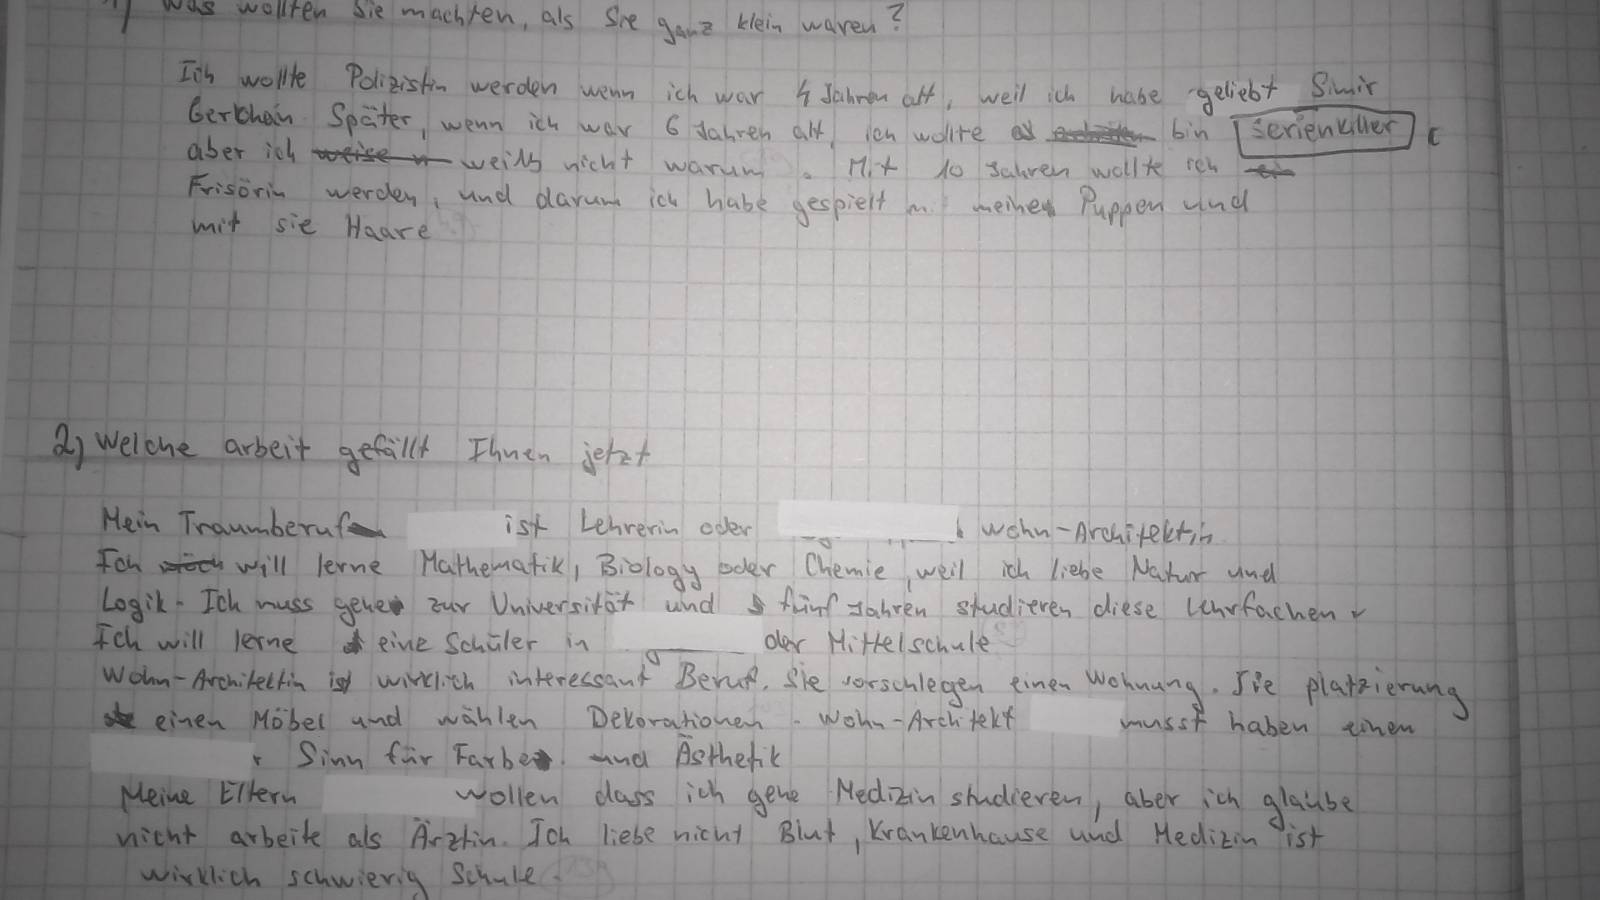 1) Was wollten Sie machten, als Sie ganz klein waren?
Ich wollte Polizistin werden wenn ich war 4 Jahren alt, weil ich habe geliebt
Später, wenn ich war 6 Jahren alt, ich wollte bin serienkiller
aber ich weiß nicht warum. Mit 10 Jahren wollte ich
Frisörin werden, und darum ich habe gespielt meine Puppen und
mit sie Haare
2) Welche arbeit gefällt Ihnen jetzt
Mein Traumberuf ist Lehrerin oder Wohn-Architektin
Ich will lerne Mathematik, Biology oder Chemie, weil ich liebe Natur und
Logik. Ich muss gehe zur Universität und fünf Jahren studieren diese Lehrfachen.
Ich will lerne eine Schüler in der Mittelschule
Wohn-Architektin ist wirklich interessant Beruf. Sie vorschlegen einen Wohnung. Sie platzierung
einen Möbel und wählen Dekorationen. Wohn-Architekt musst haben einen
Sinn für Farbe und Ästhetik
Meine Eltern wollen dass ich gehe Medizin studieren, aber ich glaube
nicht arbeite als Ärztin. Ich liebe nicht Blut, Krankenhause und Medizin ist
wirklich schwierig Schule.